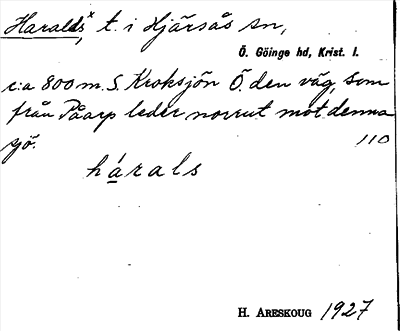 Haralds,ˣ t. i Hjärsås sn,
Ö. Göinge hd, Krist. l.
c:a 800 m. S. Kroksjön Ö. den väg, som
från Påarp leder norrut mot denna
sjö. 110
hárals
H. ARESKOUG 1927